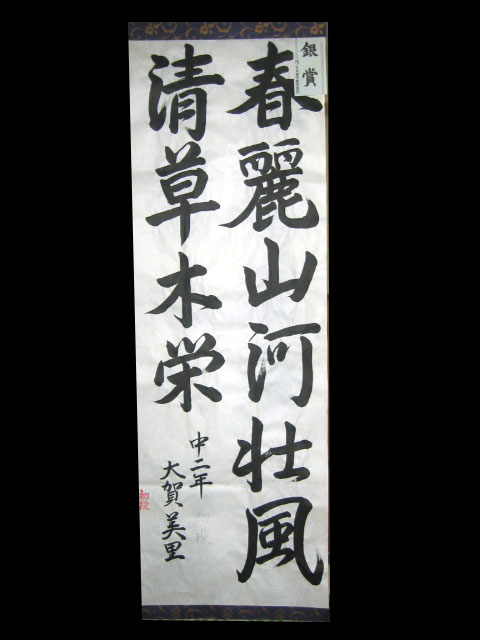 銀賞
春麗山河壮風
清草木栄
中二年
大賀美里
初段
初段